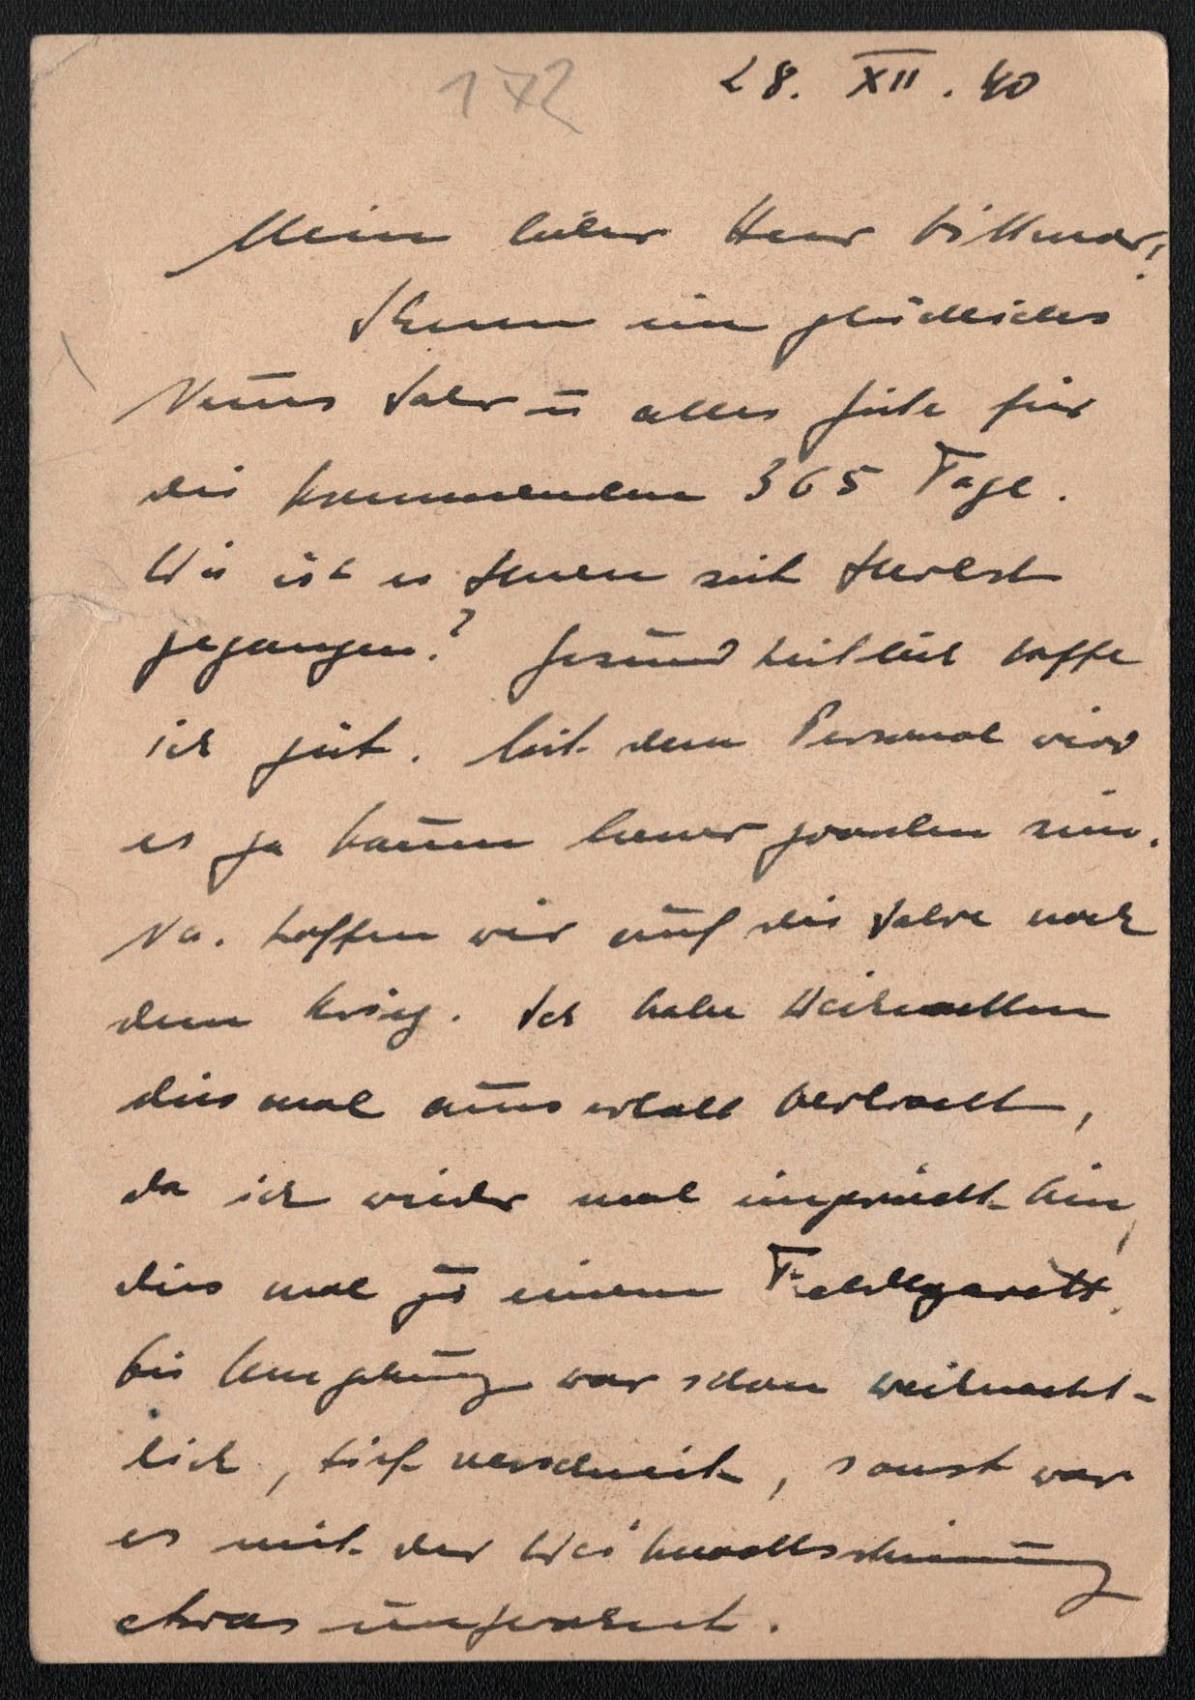 172
28. XII. 40
Mein lieber Herr
Ihnen ein glückliches
Neues Jahr u alles Gute für
die kommenden 365 Tage.
Wie ist es Ihnen seit Herbst
gegangen? Gesundheitlich hoffe
ich gut. Mit dem Personal wird
es ja kaum besser geworden sein.
Na. hoffen wir auf die Jahre nach
dem Krieg. Ich habe Weihnachten
diesmal auswärts verbracht,
da ich wieder mal eingerückt bin,
dies mal zu einem Feldlazarett.
Die Umgebung war schon weihnacht-
lich, tief verschneit, sonst war
es mit der Weihnachtsstimmung
etwas ungewohnt.